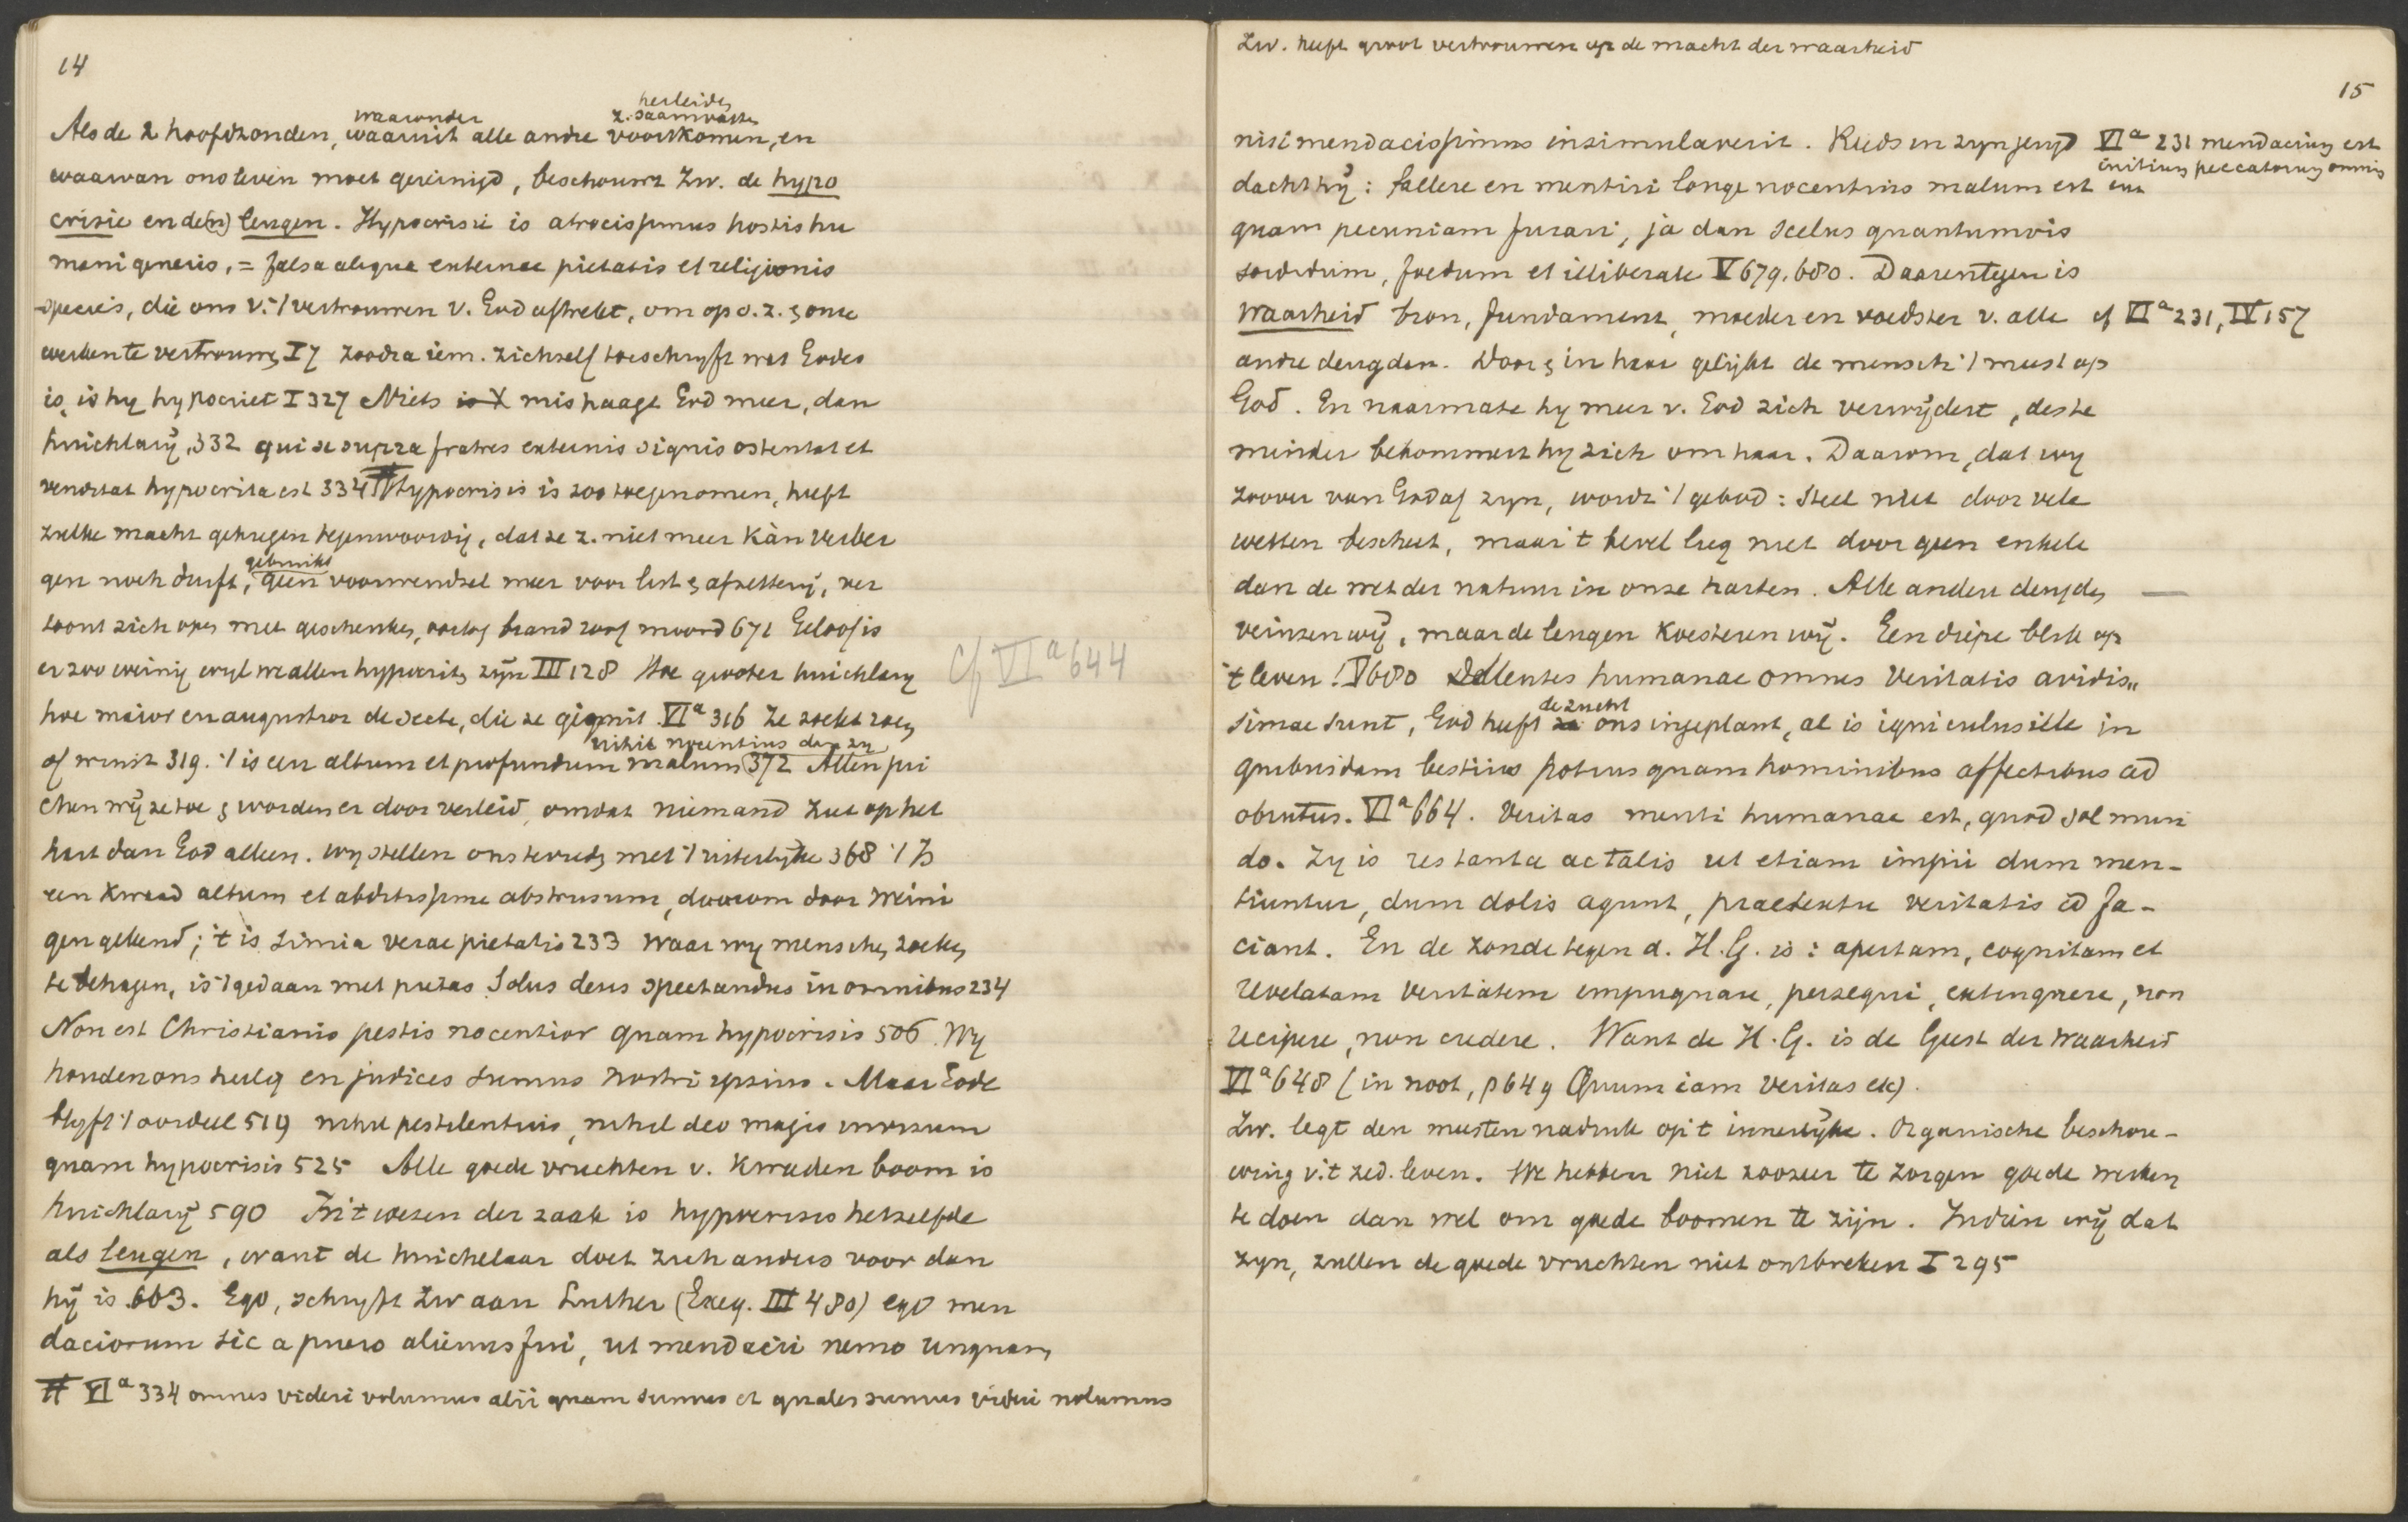 14
herleiden
waaronder z. saamvatten
Als de 2 hoofdzonden, waaruit alle andre voortkomen, en
waarvan ons leven moet gereinigd, beschouwt Zw. de hypo
crisie en de(n) leugen. Hypocrisie is atrocissimus hostis hu
mani generis, = falsa aliqua externae pietatis et religionis
species, die ons v. 't vertrouwen v. God aftrekt, om op o. z. en onze
werken te vertrouwen I 7 zoodra iem. zichzelf toeschryft wat Godes
is, is hy hypocriet I 327 Niets is X mishaagt God meer, dan
huichlarij, 332 qui se supra fratres externis signis ostentat et
venditat hypocrita est 334 # Hypocrisis is zoo toegenomen, heeft
zulke macht gekregen tegenwoordig, dat ze z. niet meer kàn verber
gebruikt
gen noch durft, geen voorwendsel meer voor list en afzetterij, ver
toont zich open met geschenken, oorlog brand roof moord 671 Geloof is
er zoo weinig wyl we allen hypocriten zijn III 128 Hoe grooter huichlary
Cf VIa 644
hoe maior en augustior de secte, die ze gignit VIa 316 Ze zoekt roem
of winst 319. 't is een altum et profundum malum 372 Allen jui
nihil nocentius dan zy
chen wij ze toe en worden er door verleid, omdat niemand ziet op het
hart dan God alleen. wy stellen ons tevreden met 't uiterlyke 368 't Is
een kwaad altum et abditissime abstrusum, daarom door weini
gen gekend; 't is simia verae pietatis 233 waar wy menschen zoeken
te behagen, is 't gedaan met pietas Solus deus spectandus in omnibus 234
Non est Christianis pestis nocentior quam hypocrisis 506. Wy
houden ons heilig en judices sumus nostri ipsius. Maar Gode
blyft 't oordeel 519 nihil pestilentius, nihil deo magis invisum
quam hypocrisis 525 Alle goede vruchten v. kwaden boom is
huichlarij 590 In 't wezen der zaak is hypocrisis hetzelfde
als leugen, want de huichelaar doet zich anders voor dan
hij is 603. Ego, schryft Zw aan Luther (Exeg. III 480) ego men
daciorum sic a puero alienus fui, ut mendacii nemo unquam
# VIa 334 omnes videri volumus alii quam sumus et quales sumus videri nolumus
Zw. heeft groot vertrouwen op de macht der waarheid
15
nisi mendacissimus insimulaverit. Reeds in zyn jeugd
VIa 231 mendacium est
initium peccatorum omnium
dacht hij: fallere en mentiri longe nocentius malum est
quam pecuniam furari, ja dan scelus quantumvis
sordidum, foedum et illiberale V 679. 680. Daarentegen is
Waarheid bron, fundament, moeder en voedster v. alle cf VIa 231, IV 157
andre deugden. Door en in haar gelijkt de mensch 't meest op
God. En naarmate hy meer v. God zich verwijdert, des te
minder bekommert hy zich om haar. Daarom, dat wy
zoover van God af zyn, wordt 't gebod: Steel niet door vele
wetten beschut, maar 't bevel lieg niet door geen enkele
dan de wet der natuur in onze harten. Alle andere deugden —
veinzen wij, maar de leugen koesteren wij. Een diepe blik op
't leven! V 680 Mentes humanae omnes veritatis avidis„
de zucht
simae sunt, God heeft ze ons ingeplant, al is igniculus ille in
quibusdam bestiis potius quam hominibus affectibus ad
obrutus. VIa 664. Veritas menti humanae est, quod sol mun
do. Zy is res tanta ac talis ut etiam impii dum men-
tiuntur, dum dolis agunt, praetextu veritatis id fa-
ciant. En de zonde tegen d. H. G. is: apertam, cognitam et
revelatam veritatem impugnare, persequi, extinguere, non
recipere, non credere. Want de H. G. is de Geest der waarheid
VIa 648 (in noot, p 649 Quum iam veritas etc).
Zw. legt den meesten nadruk op 't innerlijke. Organische beschou-
wing v. 't zed. leven. We hebben niet zoozeer te zorgen goede werken
te doen dan wel om goede boomen te zijn. Indien wij dat
zyn, zullen de goede vruchten niet ontbreken I 295